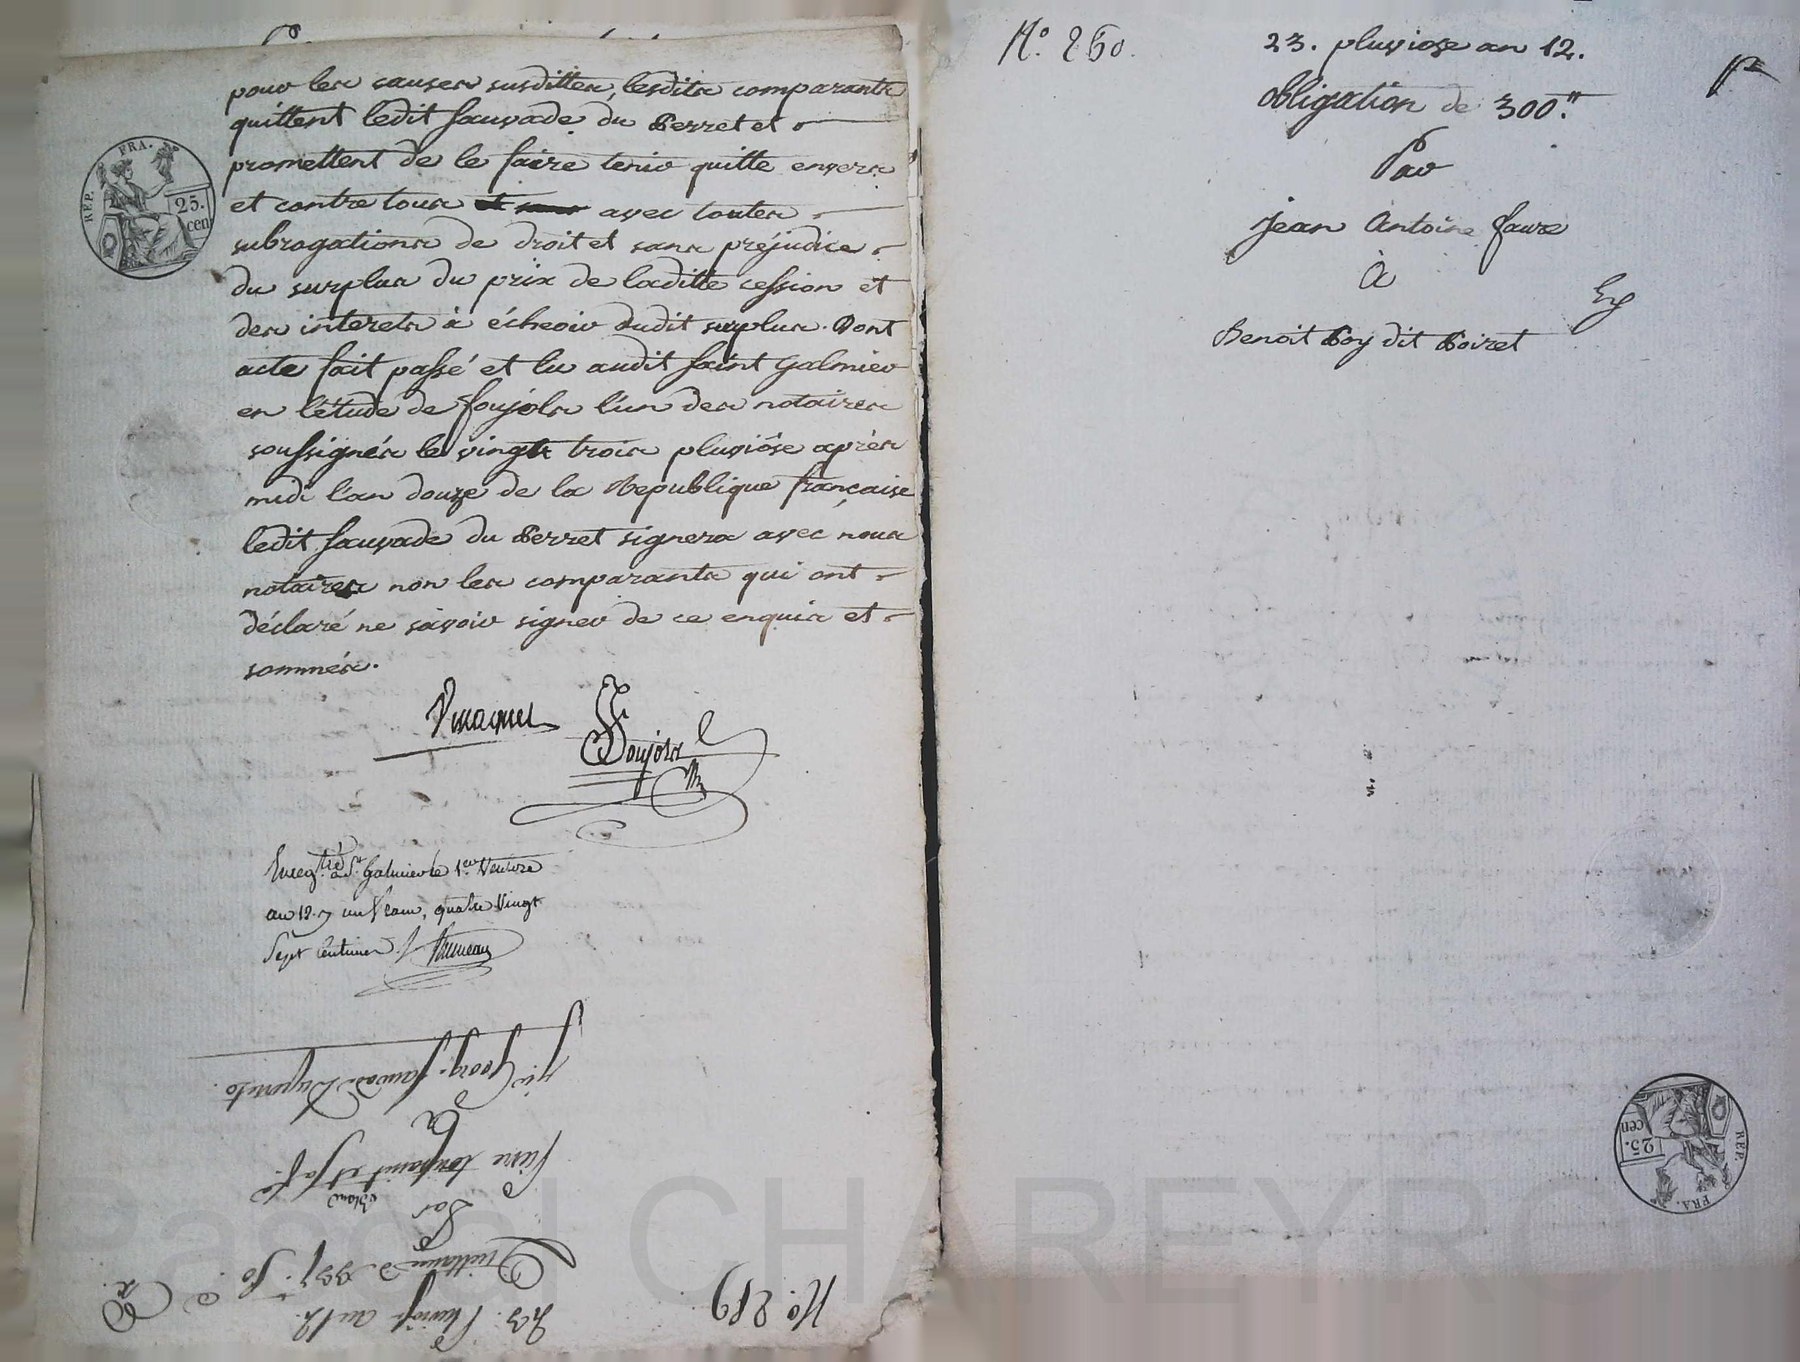 pour les causes susdittes, lesdits comparants
quittent ledit Sauvade du Perret et
promettent de le faire tenir quitte envers
et contre tous avec toutes
subrogations de droit et sans préjudice
du surplus du prix de laditte cession et
des interets à écheoir dudit surplus. Dont
acte fait passé et lu audit Saint Galmier
en l'étude de Foujols l'un des notaires
soussignés le vingt trois pluviôse après
midi l'an douze de la Republique française
ledit Sauvade du Perret signera avec nous
notaires non les comparants qui ont
déclaré ne savoir signer de ce enquis et
sommés.
Foujols
Enregtré à St. Galmier le 1er Ventose
an 12. un franc, quatre vingt
Sept Centimes
REP. FRA.
25. cen
No. 259
23. Pluviose an 12.
Quittance de
Par
à
No. 260.
23. pluviose an 12.
Obligation de 300.
Par
jean Antoine faure
à
Benoit Poy dit Poiret
REP. FRA.
25. cen
Pascal CHAREYRON